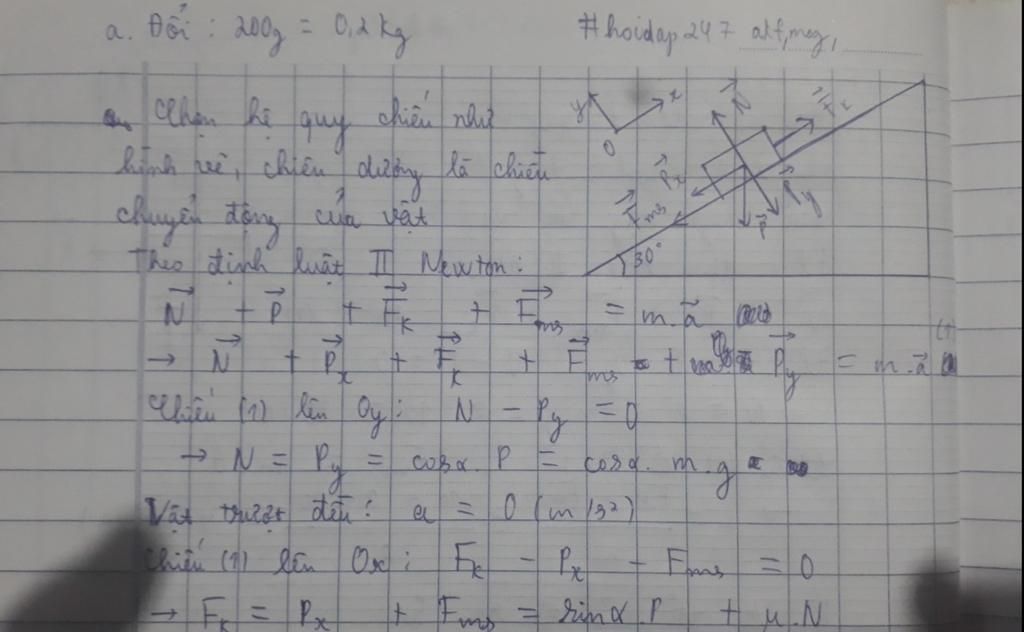 a. Đổi : 200g = 0,2 kg
#hoidap247
Chọn hệ quy chiếu như
hình vẽ, chiều dương là chiều
chuyển động của vật
Theo định luật II Newton:
N + P + Fk + Fms = m.a
→ N + Px + Fk + Fms + Py = m.a (1
Chiếu (1) lên Oy: N - Py = 0
→ N = Py = cosα. P = cosα. m. g
Vật trượt đều: a = 0 (m/s²)
Chiếu (1) lên Ox: Fk - Px - Fms = 0
→ Fk = Px + Fms = sinα.P + μ.N
y
x
O
N
Fk
Px
Fms
P
Py
30°